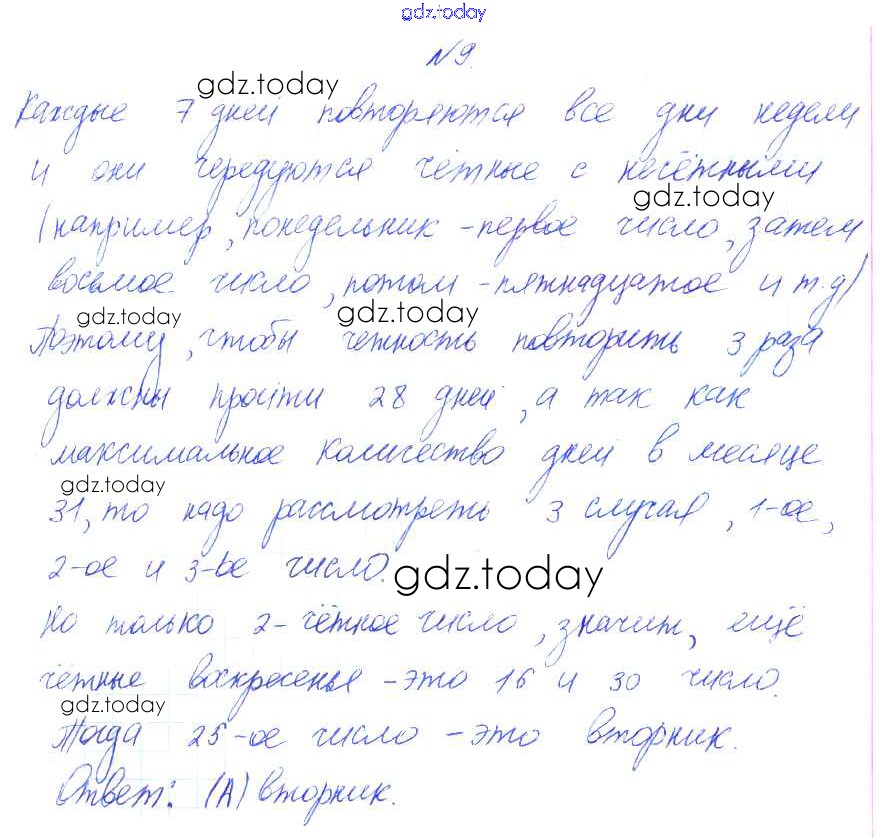 gdz.today
№9.
gdz.today
Каждые 7 дней повторяются все дни недели
и они чередуются чётные с нечётными
gdz.today
(например, понедельник - первое число, затем
восьмое число, потом - пятнадцатое и т.д)
gdz.today gdz.today
Поэтому, чтобы чётность повторить 3 раза
должны пройти 28 дней, а так как
максимальное количество дней в месяце
gdz.today
31, то надо рассмотреть 3 случая, 1-ое,
2-ое и 3-ье число.
gdz.today
Но только 2 - чётное число, значит, ещё
чётные воскресенья - это 16 и 30 число.
gdz.today
Тогда 25-ое число - это вторник.
Ответ: (А) вторник.